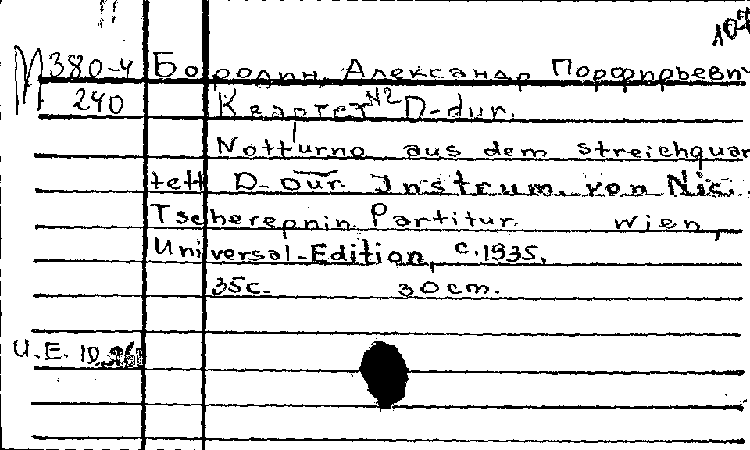 104
М 380-4 Бородин, Александр Порфирьевич
240 Квартет №2 D-dur.
Notturno aus dem streichquar
tett D-dur. Instrum. von Nic.
Tscherepnin. Partitur. Wien,
Universal-Edition, c.1935.
35c. 30cm.
U.E.